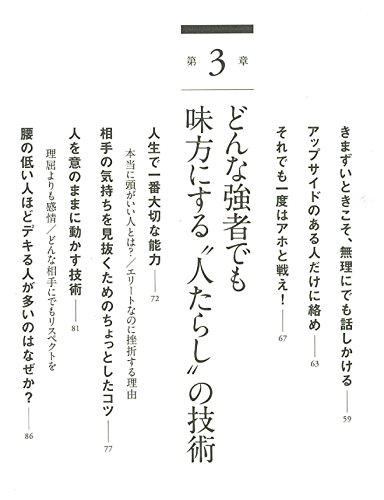 きまずいときこそ、無理にでも話しかける――59
アップサイドのある人だけに絡め――63
それでも一度はアホと戦え!――67
第3章
どんな強者でも
味方にする〝人たらし〟の技術
人生で一番大切な能力――72
本当に頭がいい人とは?/エリートなのに挫折する理由
相手の気持ちを見抜くためのちょっとしたコツ――77
人を意のままに動かす技術――81
理屈よりも感情/どんな相手にでもリスペクトを
腰の低い人ほどデキる人が多いのはなぜか?――86